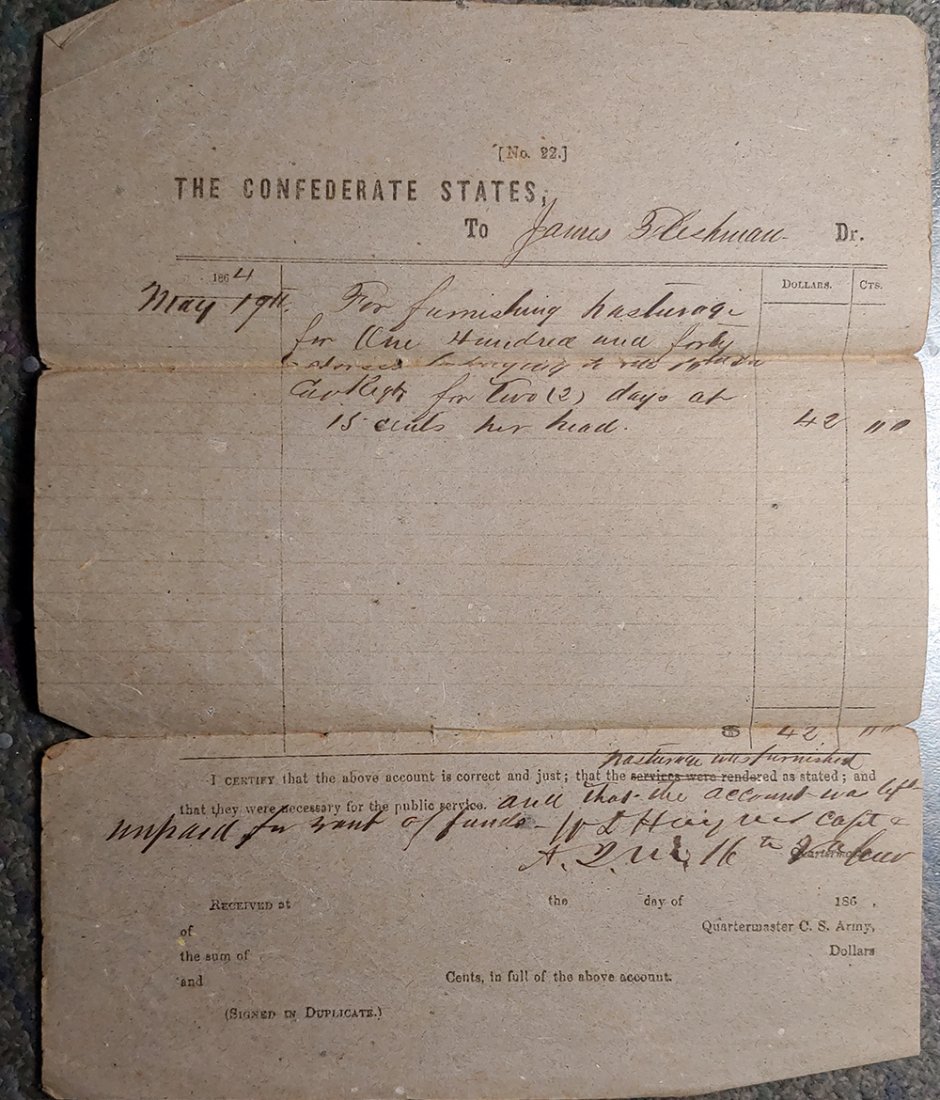 [No. 22.]
THE CONFEDERATE STATES,
To James Fleshman Dr.
1864
DOLLARS. CTS.
May 19th. For furnishing pasturage
for One Hundred and forty
Horses belonging to the 16th Va
Cav Regt for Two (2) days at
15 cents per head. 42 00
$ 42 00
pasturage was furnished
I CERTIFY that the above account is correct and just; that the services were rendered as stated; and
that they were necessary for the public service. and that the account was left
unpaid for want of funds - Capt &
A. Q. M. 16th Va Cav
Quartermaster
RECEIVED at the day of 186 .
of Quartermaster C. S. Army,
the sum of Dollars
and Cents, in full of the above account.
(SIGNED IN DUPLICATE.)